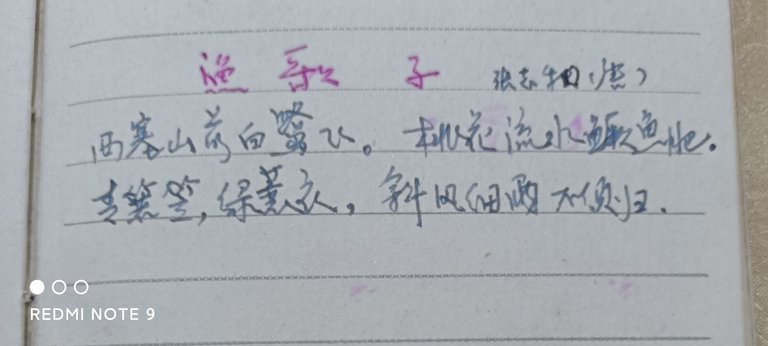 渔歌子 张志和(唐)
西塞山前白鹭飞。桃花流水鳜鱼肥.
青箬笠,绿蓑衣,斜风细雨不须归.
REDMI NOTE 9